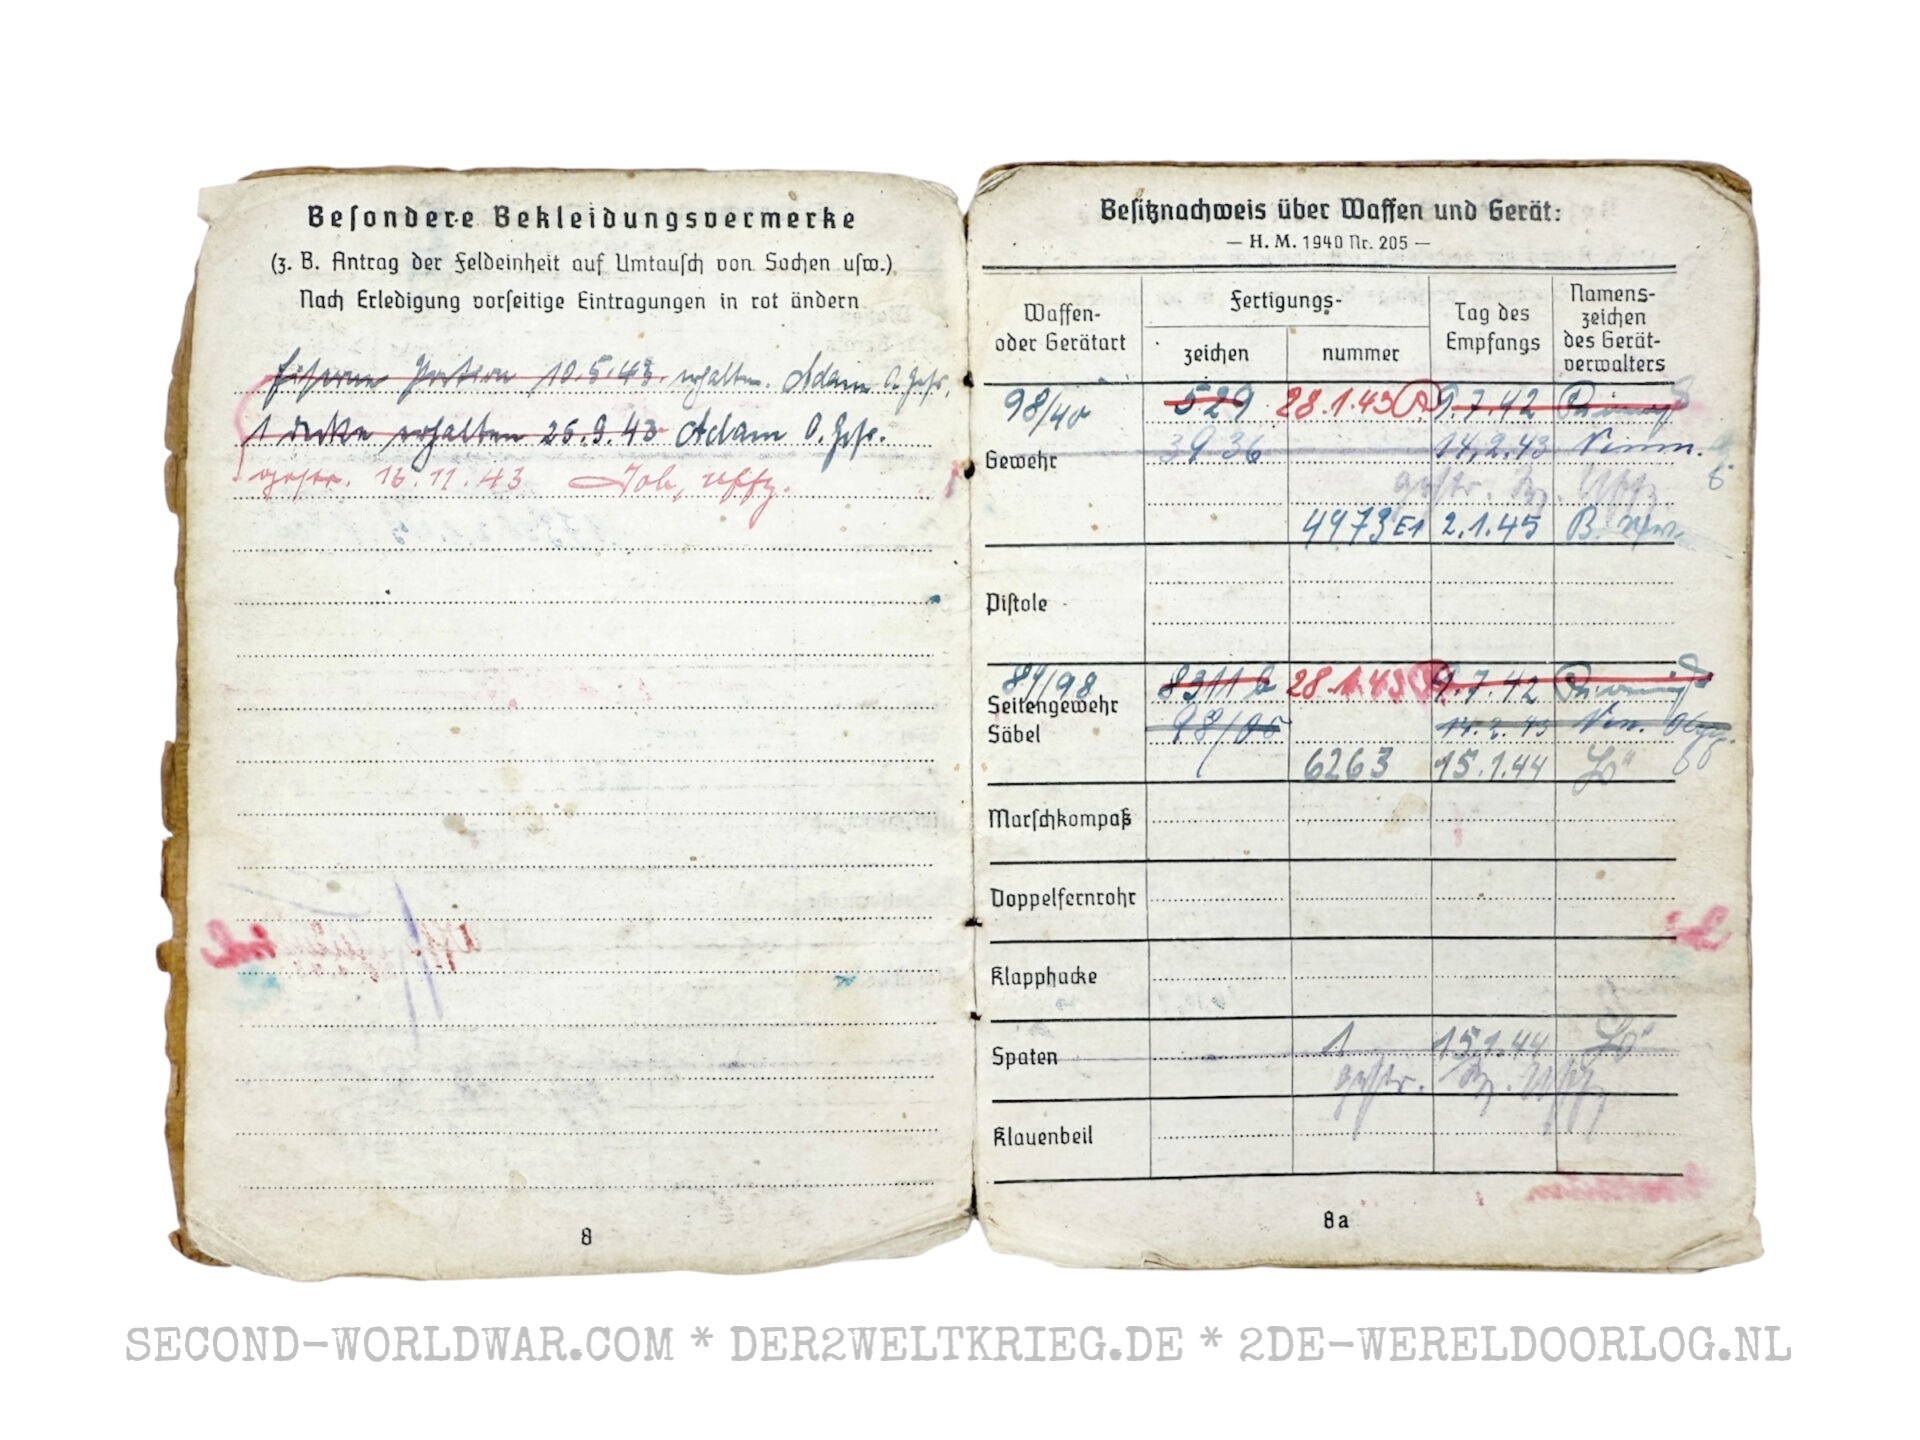 Besondere Bekleidungsvermerke
(z. B. Antrag der Feldeinheit auf Umtausch von Sachen usw.)
Nach Erledigung vorseitige Eintragungen in rot ändern
Eiserne Portion 10.5.43. erhalten. Adam O. Gefr.
1 Decke erhalten 26.9.43 Adam O. Gefr.
gestr. 16.11.43 Uffz.
8
Besitznachweis über Waffen und Gerät:
— H. M. 1940 Nr. 205 —
Waffen- oder Gerätart
Fertigungs-
zeichen
nummer
Tag des Empfangs
Namens-zeichen des Gerät-verwalters
98/40 529 28.1.43 9.7.42
Gewehr 3936 14.2.43
gestr. Uffz
4973 E1 2.1.45 B.
Pistole
84/98 8311 b 28.1.43 9.7.42
Seitengewehr
Säbel 98/05 14.2.43
6263 15.1.44 Lö
Marschkompaß
Doppelfernrohr
Klapphacke
Spaten 1 15.1.44 Lö
gestr. Uffz
Klauenbeil
8a
SECOND-WORLDWAR.COM * DER2WELTKRIEG.DE * 2DE-WERELDOORLOG.NL